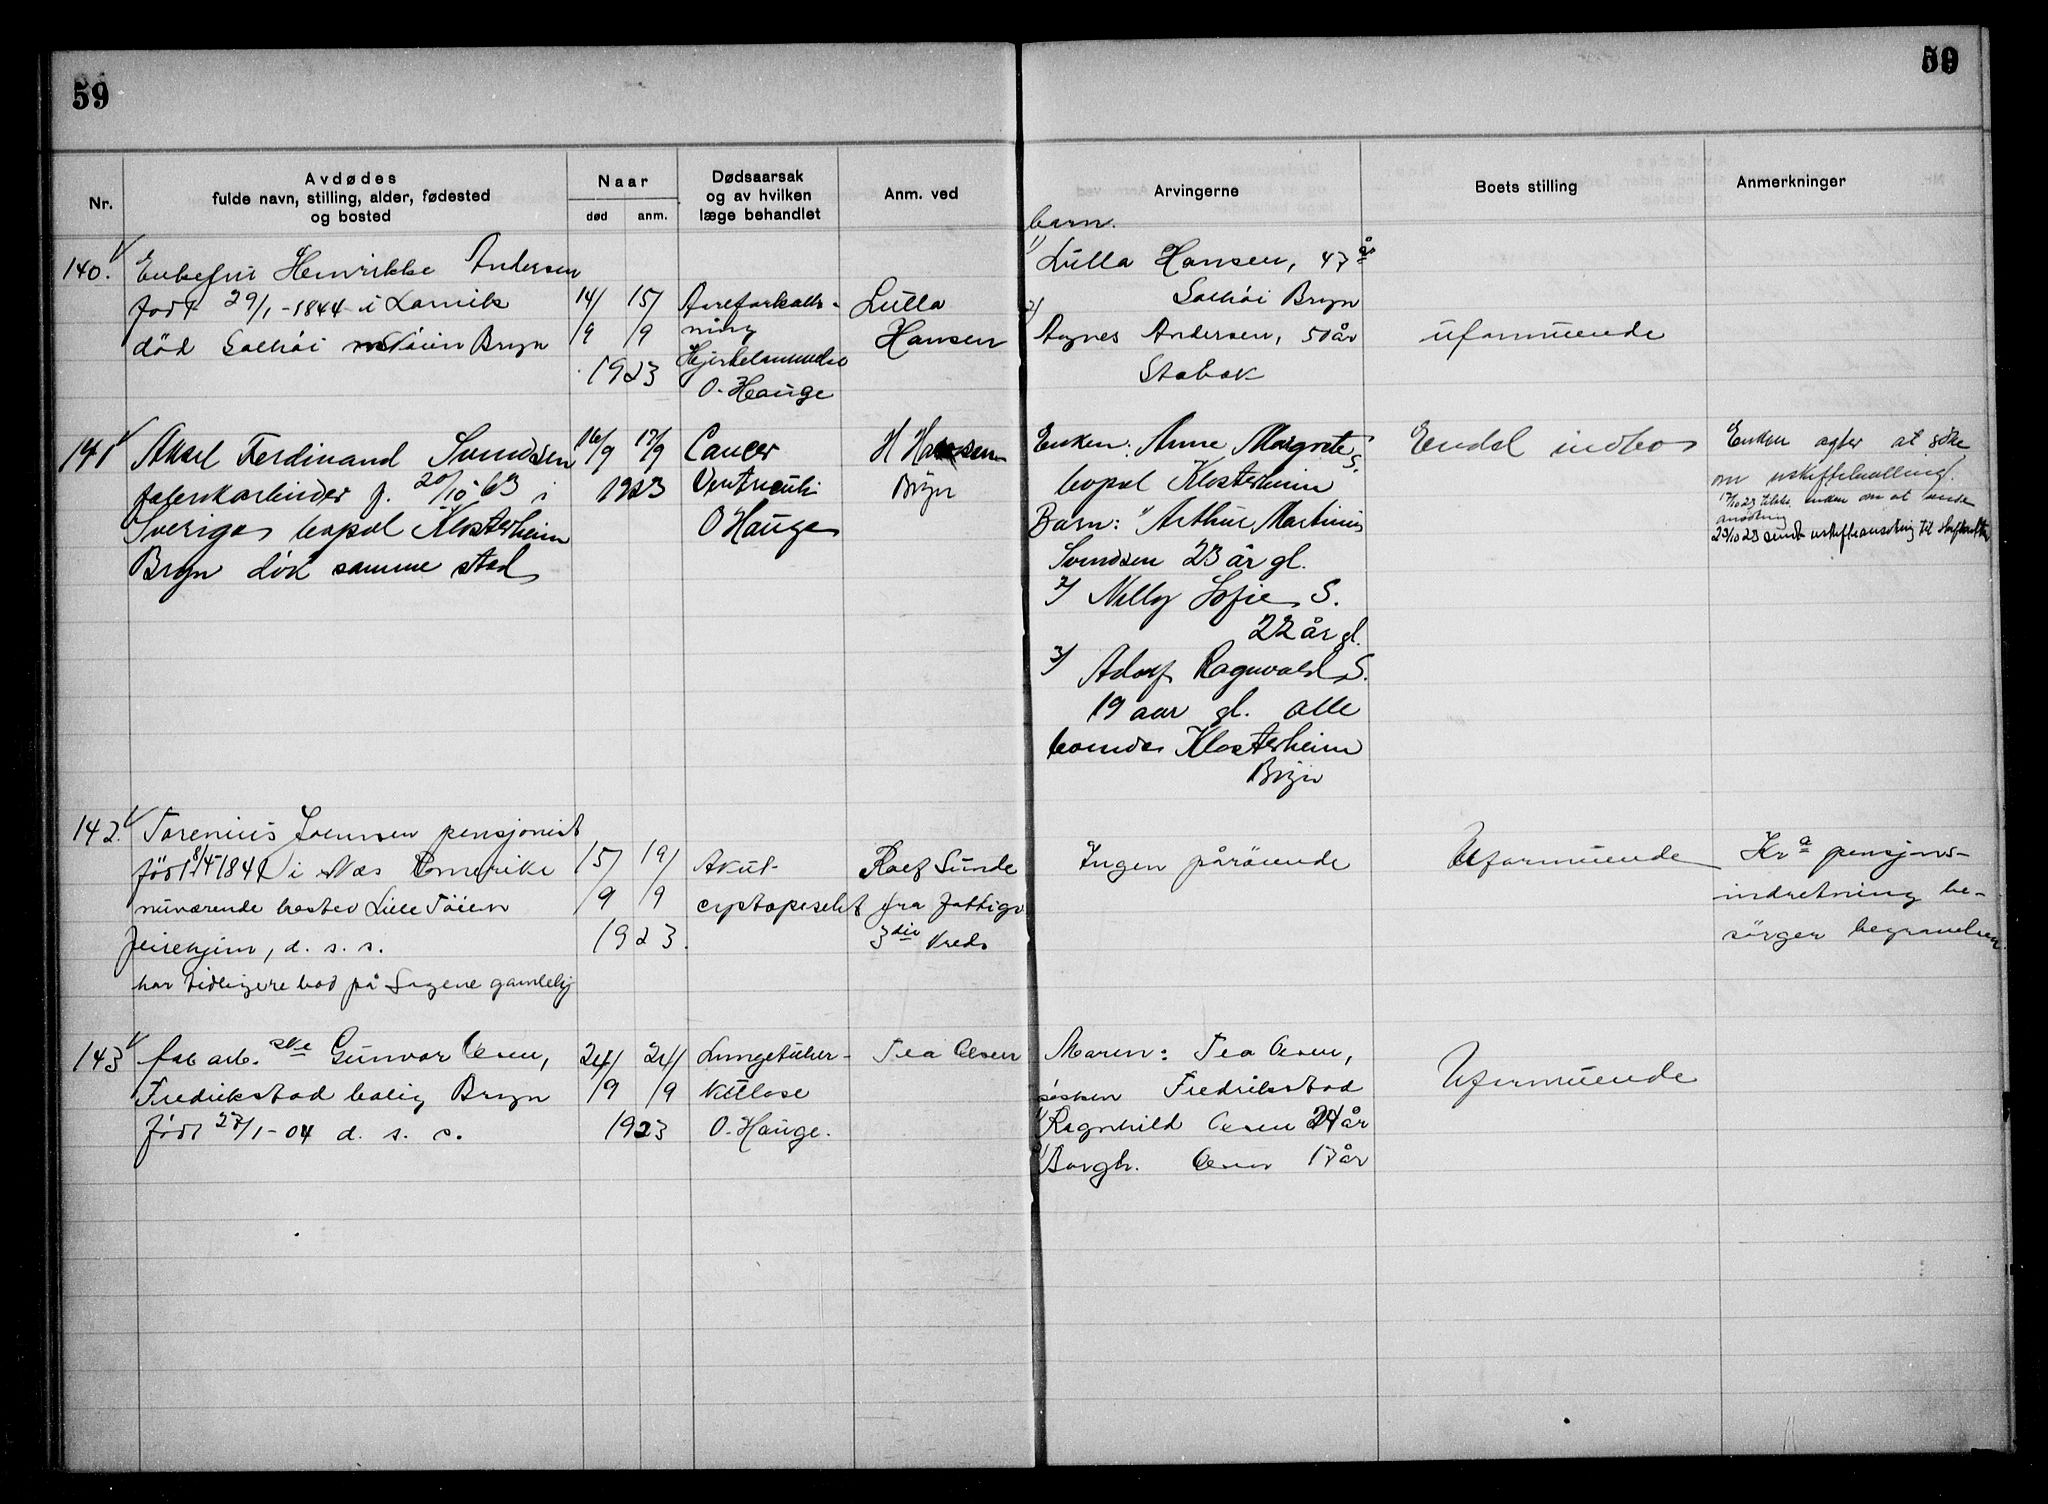 59
59
Nr.
Avdødes
fulde navn, stilling, alder, fødested
og bosted
Naar
død
anm.
Dødsaarsak
og av hvilken
læge behandlet
Anm. ved
Arvingerne
Boets stilling
Anmerkninger
140.
Enkefru Henrikke Andersen
født 29/1 -1844 i Larvik
død Solhöi Töien Bryn
14/9 15/9
1923
Aareforkalk-
ning
Hjertelammelse
O. Hauge
Lulla
Hansen
barn.
1) Lulla Hansen, 47 år
Solhöi Bryn
2)
Agnes Andersen, 50 år
Stabæk
uformuende
141
Aksel Ferdinand Svendsen
fabrikarbeider f. 20/10 63 i
Sverige bopæl Klosterheim
Bryn død samme sted
16/9 17/9
1923
Cancer
Ventriculi
O Hauge
H Hansen
Bryn
Enken: Anne Margrete S.
bopæl Klosterheim
Barn: 1) Arthur Martinius
Svendsen 23 år gl.
2) Nelly Sofie S.
22 år gl.
3) Adolf Ragnvald S.
19 aar gl. alle
boende Klosterheim
Bryn
Endel indbo
Enken agter at søke
om uskiftebevilling.
enken om at sende
ansökning
23/10 23 sendt uskifteansökning til
142.
Torenius Joensen pensjonist
født 8/4-1841 i Næs Romerike
nuværende bosted Lille Töien
Pleiehjem, d. s. s.
har tidligere bod på Sagene gamlehj
15/9 19/9
1923.
Akut
Rolf Sunde
fra Fattigv
3die Kreds
Ingen pårörende
Uformuende
Kra pensjons-
indretning be-
sörger begravelsen.
143
fab arb. ske Gunvor Olsen,
Fredrikstad bolig Bryn
født 27/1-04 d. s. s.
24/9 24/9
1923
Lungetuber-
kullose
O. Hauge.
Tea Olsen
Moren: Tea Olsen,
søsken Fredrikstad
1) Ragnhild Olsen 24 år
2) Borgh. Olsen 17 år
Uformuende